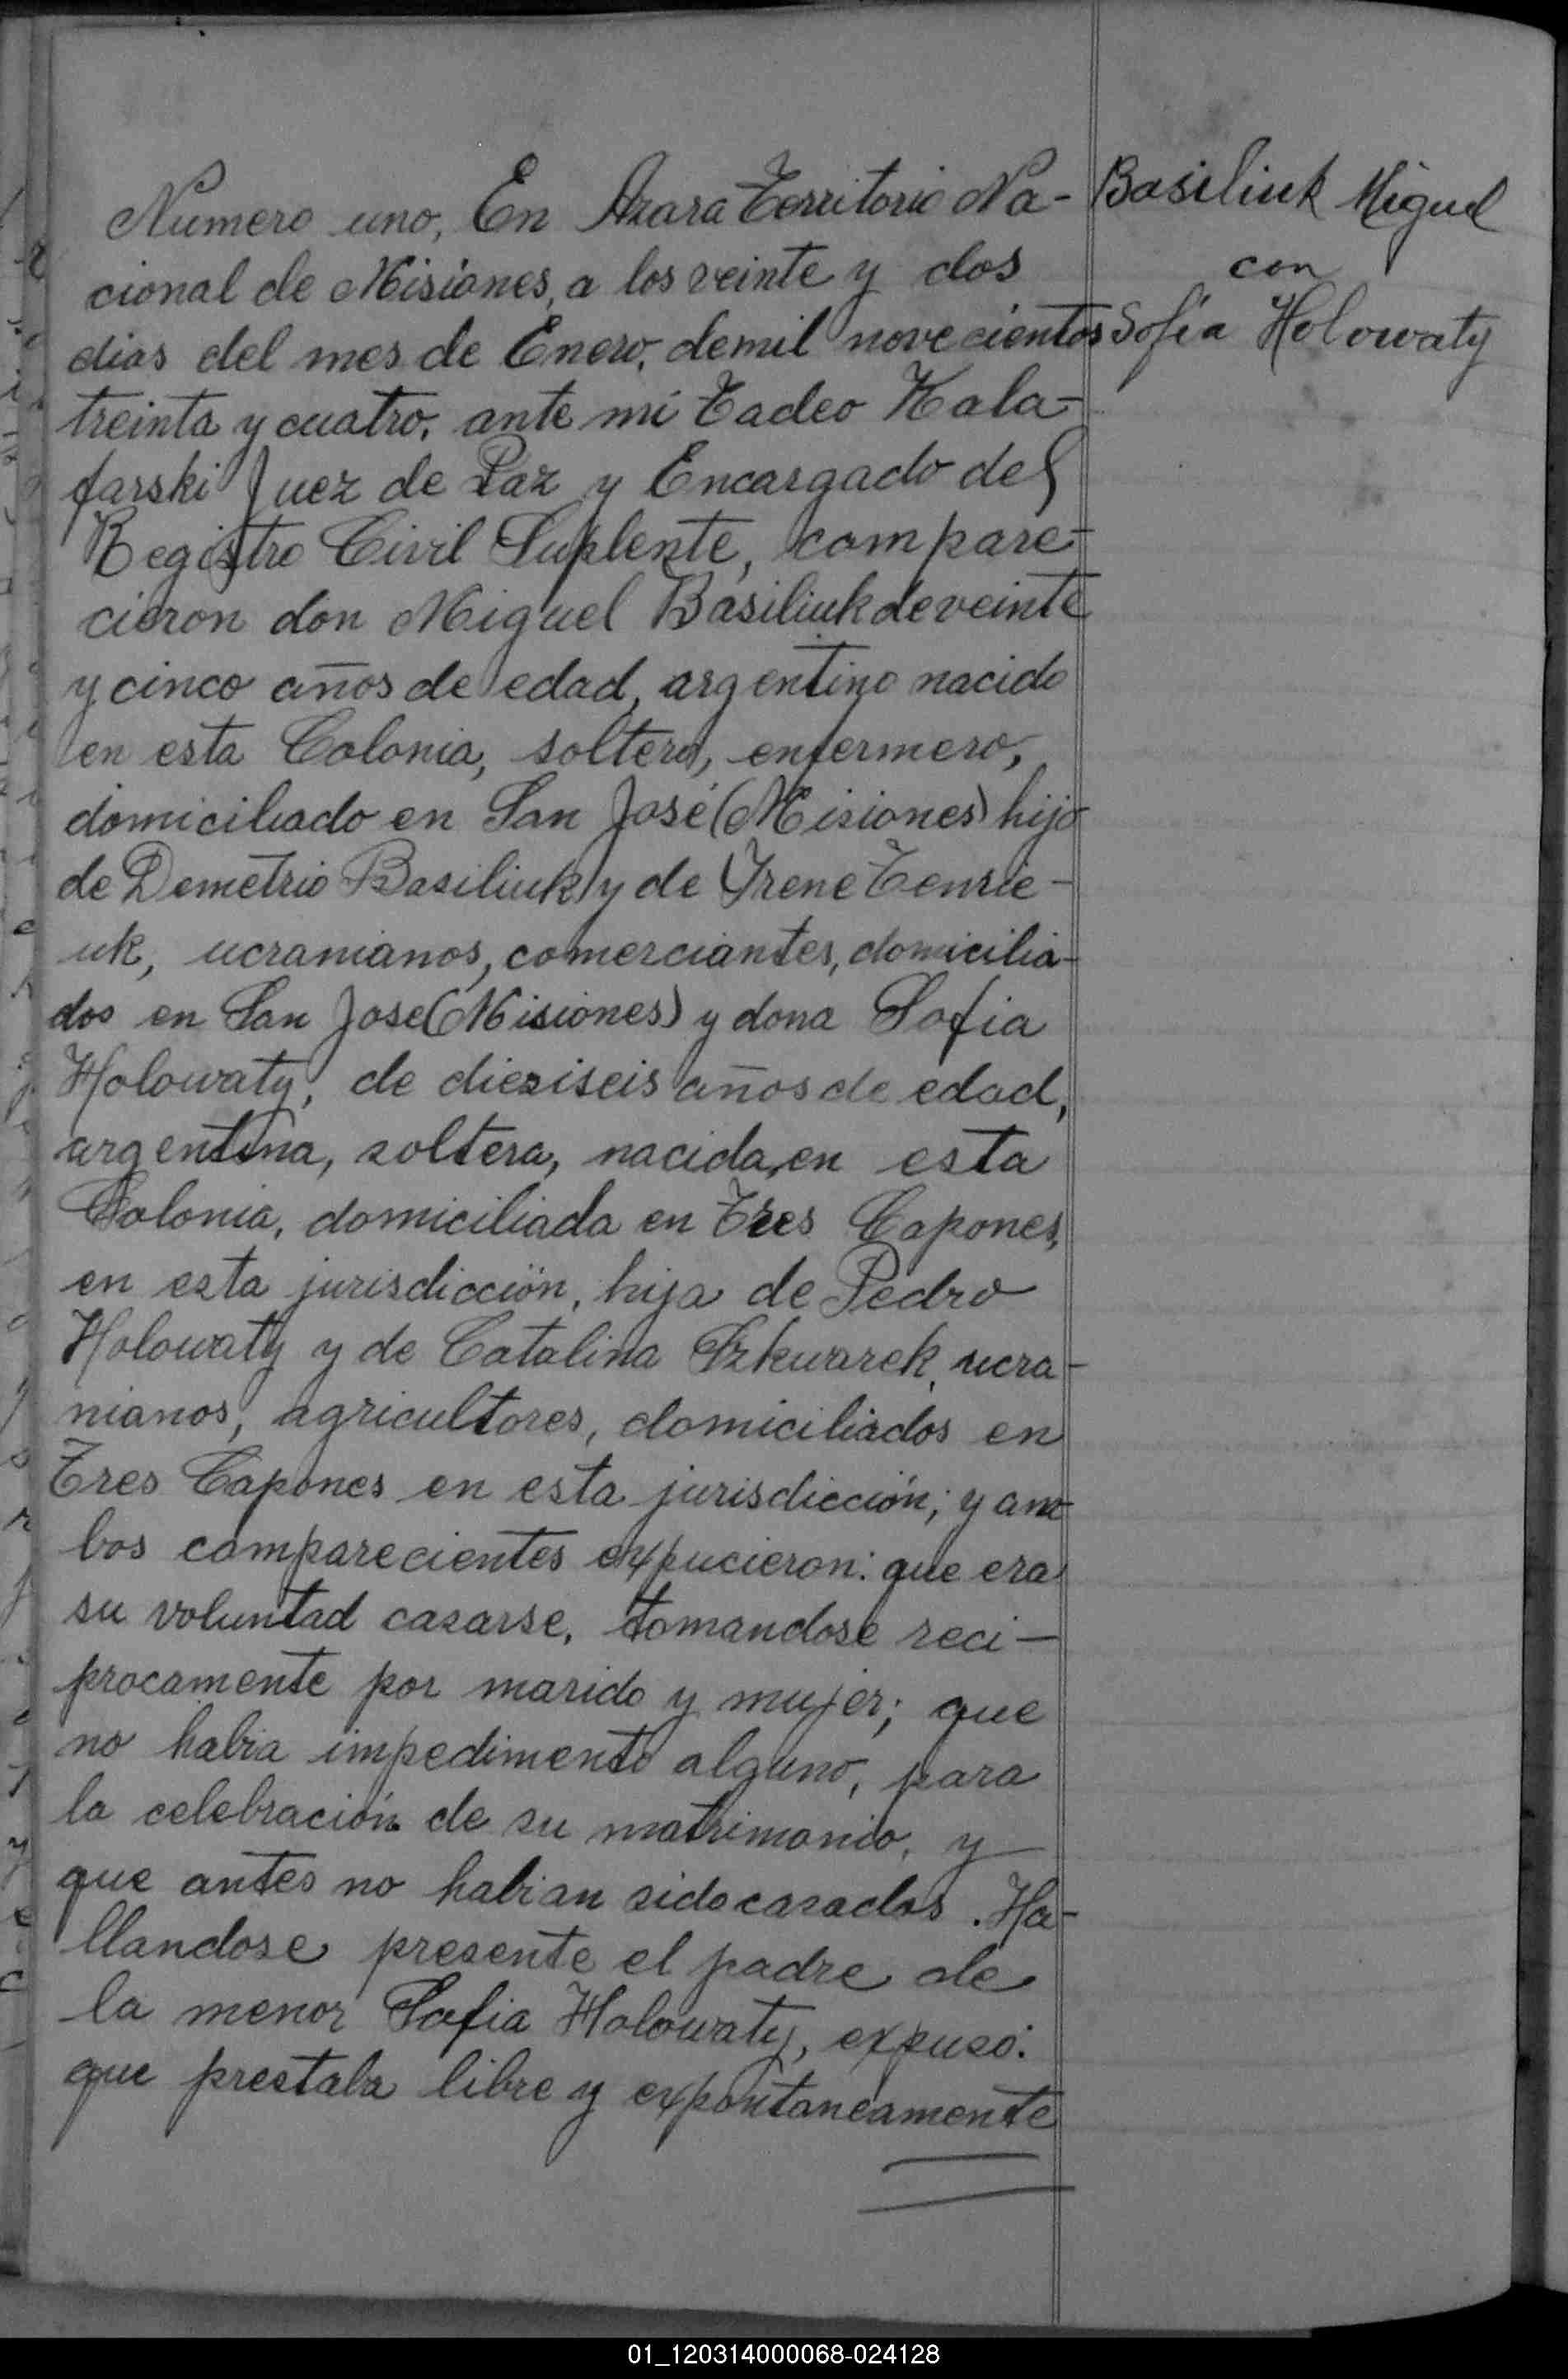 Basiliuk Miguel
con
Sofía Holowaty
Numero uno, En Azara Territorio Na-
cional de Misiones, a los veinte y dos
dias del mes de Enero, de mil novecientos
treinta y cuatro, ante mi Tadeo Kala-
farski Juez de Paz y Encargado del
Registro Civil Suplente, compare-
cieron don Miguel Basiliuk de veinte
y cinco años de edad, argentino nacido
en esta Colonia, soltero, enfermero,
domiciliado en San José (Misiones) hijo
de Demetrio Basiliuk y de Yrene
uk, ucranianos, comerciantes, domicilia-
dos en San Jose (Misiones) y dona Sofia
Holowaty, de dieziseis años de edad,
argentina, soltera, nacida, en esta
Colonia, domiciliada en Tres Capones,
en esta jurisdicción, hija de Pedro
Holowaty y de Catalina Szkwarek, ucra-
nianos, agricultores, domiciliados en
Tres Capones en esta jurisdicción; y am-
bos comparecientes expucieron: que era
su voluntad casarse, tomandose reci-
procamente por marido y mujer; que
no habia impedimento alguno, para
la celebración de su matrimonio, y
que antes no habian sido casados. Ha-
llandose presente el padre de
la menor Sofia Holowaty, expuso:
que prestaba libre y expontaneamente
01_120314000068-024128